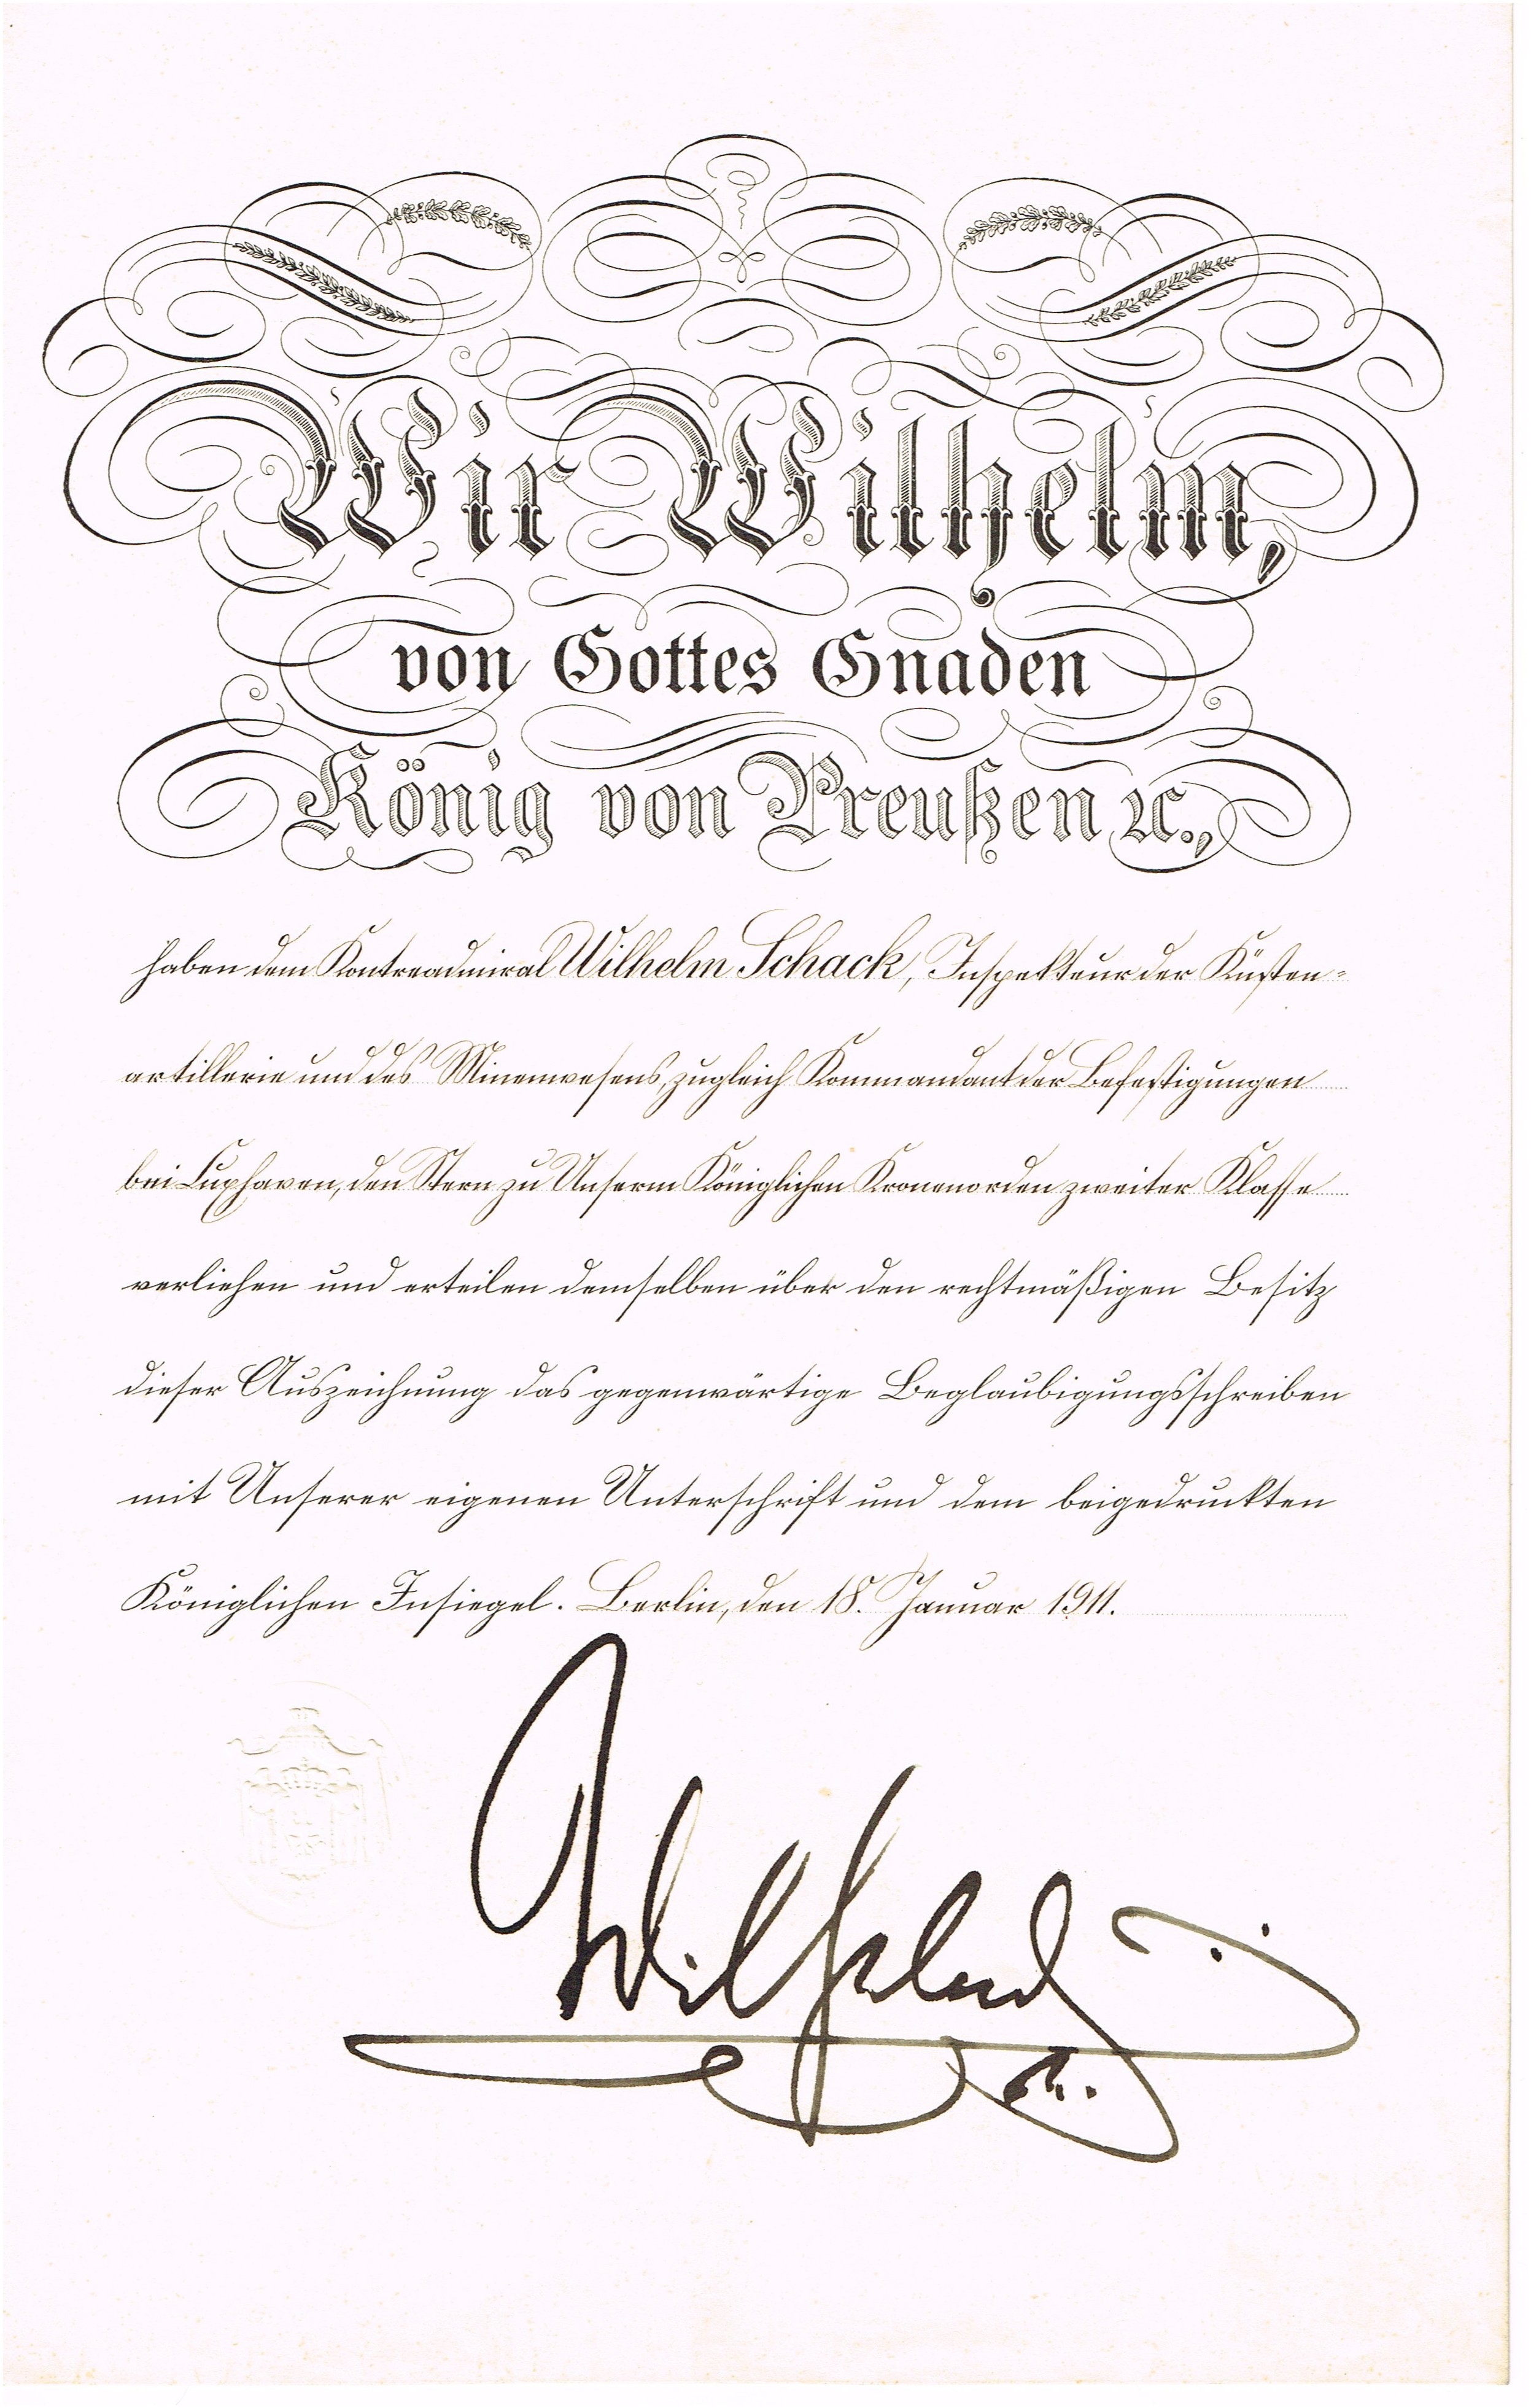 Wir Wilhelm,
von Gottes Gnaden
König von Preußen ꝛc.,
haben dem Kontreadmiral Wilhelm Schack, Inspekteur der Küsten-
artillerie und des Minenwesens, zugleich Kommandant der Befestigungen
bei Cuxhaven, den Stern zu Unserm Königlichen Kronenorden zweiter Klasse
verliehen und erteilen demselben über den rechtmäßigen Besitz
dieser Auszeichnung das gegenwärtige Beglaubigungsschreiben
mit Unserer eigenen Unterschrift und dem beigedruckten
Königlichen Insiegel. Berlin, den 18. Januar 1911.
Wilhelm
R.